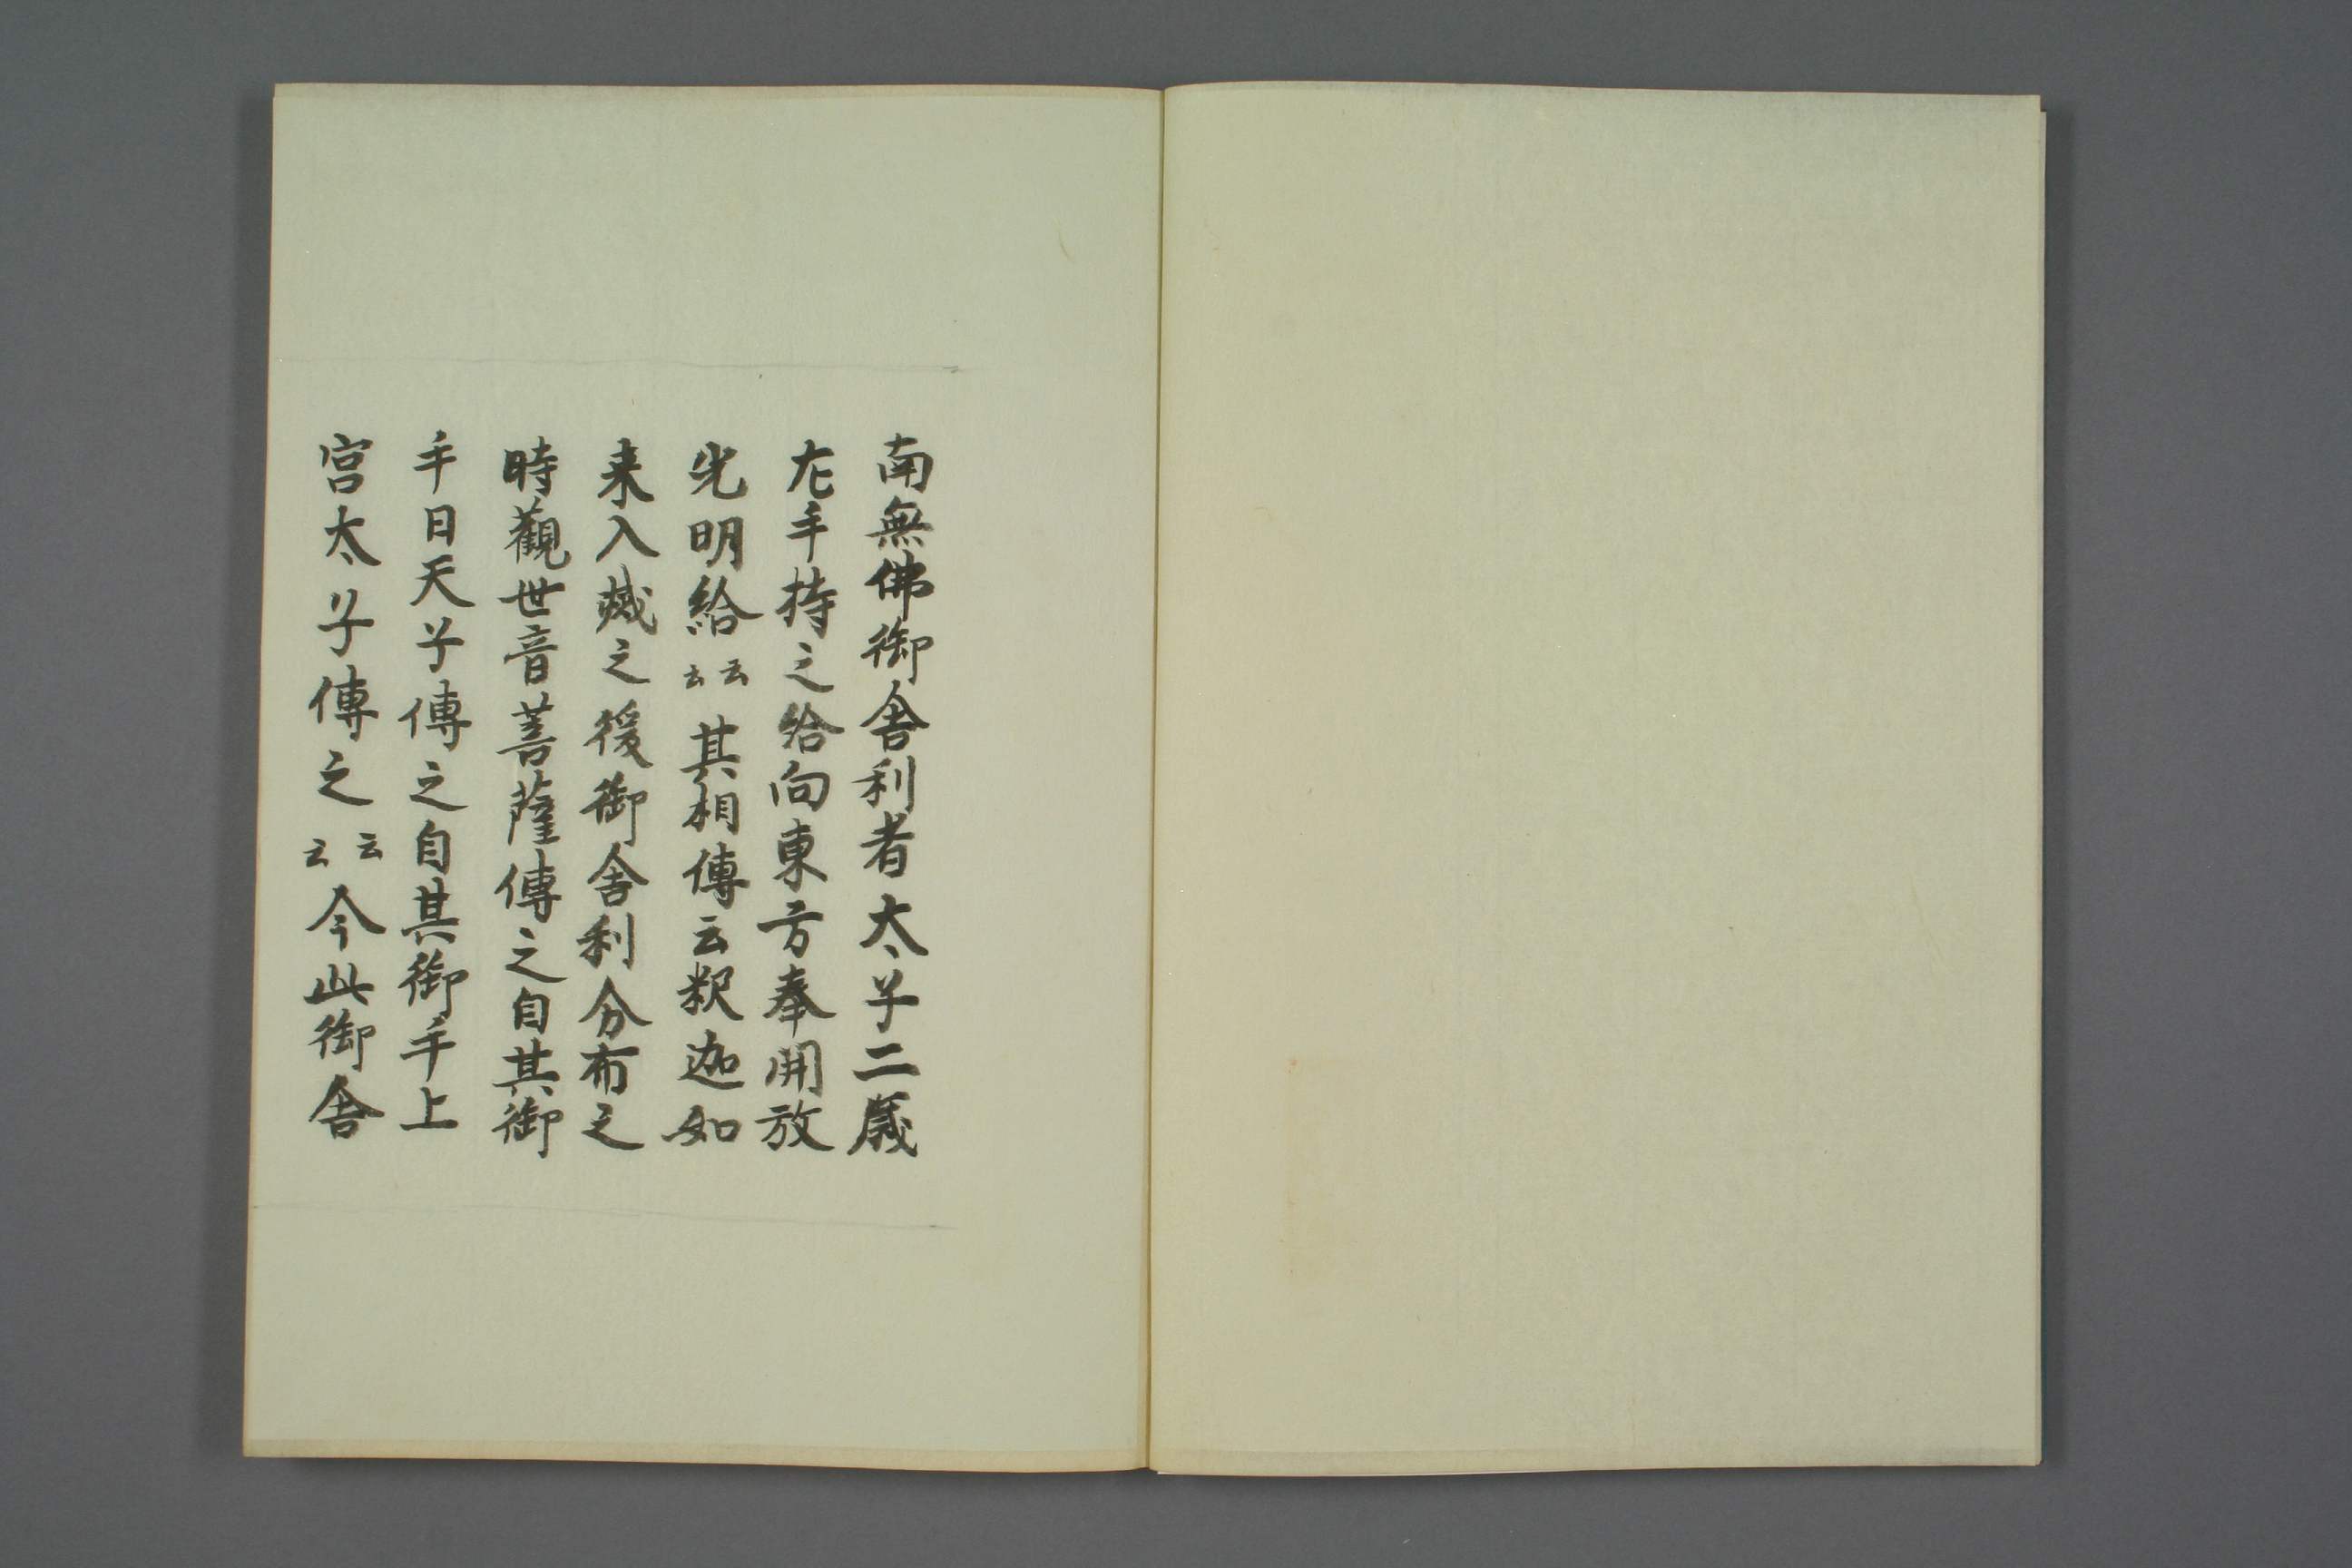 南無佛御舎利者太子二歳
左手持之給向東方奉開放
光明給云云其相傳云釈迦如
来入滅之後御舎利分布之
時觀世音菩薩傳之自其御
手日天子傳之自其御手上
宮太子傳之云云今此御舎